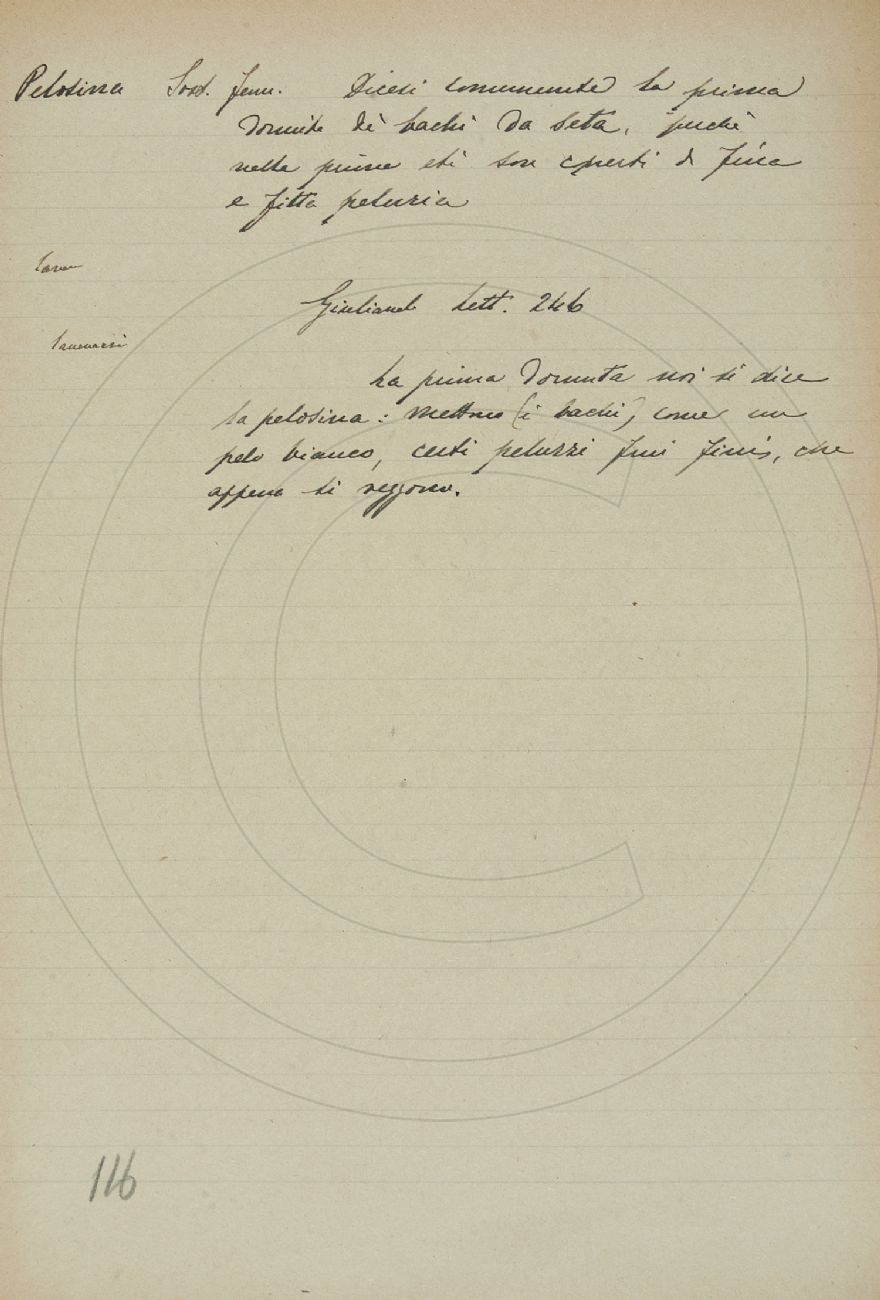 Pelosina Sost. fem. Dicesi comunemente la prima
dormita dè bachi da seta, perchè
nelle prime età son coperti di fina
e fitta peluria
Giuliani Lett. 246
La prima dormita noi si dice
la pelosina: mettono (i bachi) come un
pelo bianco, certi peluzzi fini fini, che
appena si veggono.
116